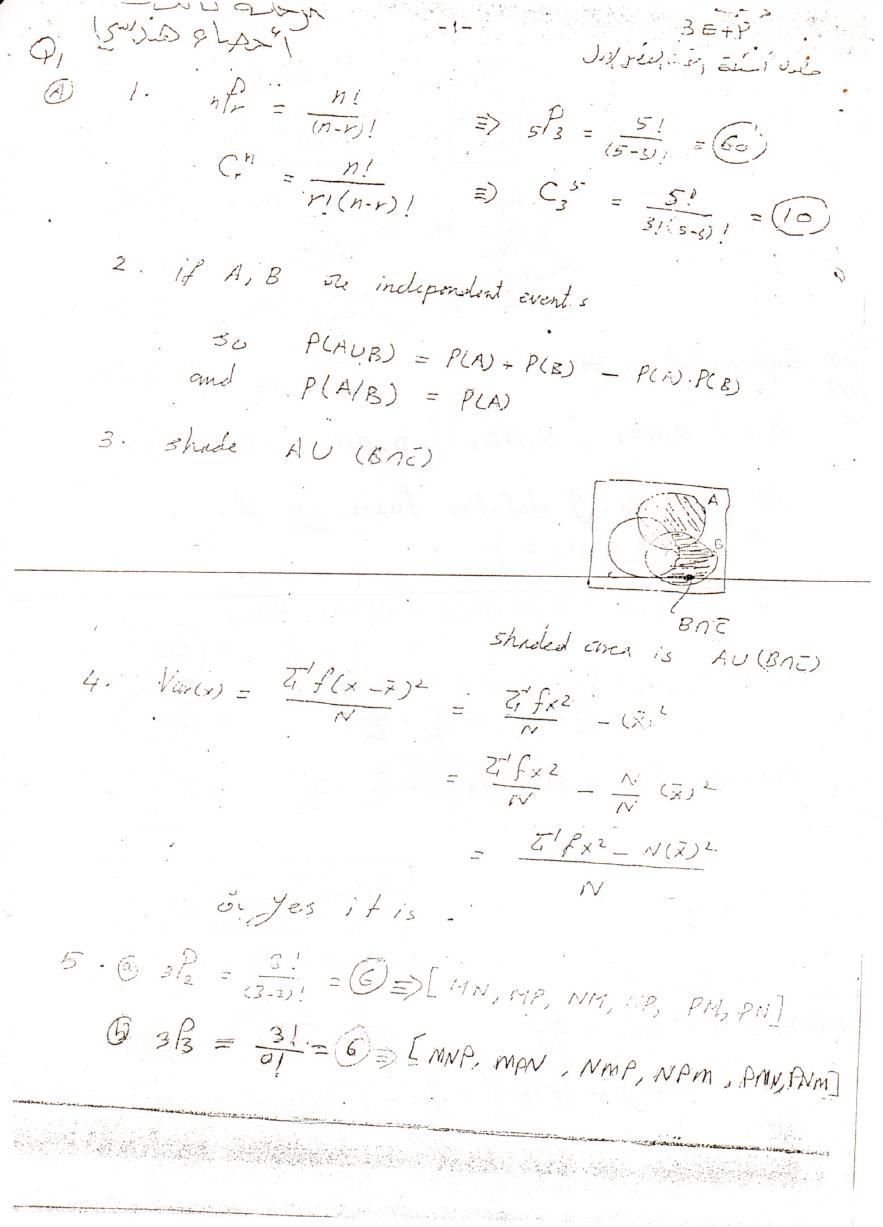 -1-
3E+P
احصاء هندسي
Q1
حلول أسئلة
(A) 1. nPr = n!/(n-r)! ⇒ 5P3 = 5!/(5-3)! = 60
C_r^n = n!/r!(n-r)! ⇒ C_3^5 = 5!/3!(5-3)! = 10
2. if A, B are independent events
so P(A∪B) = P(A) + P(B) - P(A).P(B)
and P(A/B) = P(A)
3. shade A∪(B∩C̄)
A
B
C
B∩C̄
shaded area is A∪(B∩C̄)
4. Var(x) = Σf(x-x̄)²/N = Σfx²/N - (x̄)²
= Σfx²/N - N/N (x̄)²
= Σfx² - N(x̄)²/N
∴ Yes it is.
5. (a) 3P2 = 3!/(3-2)! = 6 ⇒ [MN, MP, NM, NP, PM, PN]
(b) 3P3 = 3!/0! = 6 ⇒ [MNP, MPN, NMP, NPM, PMN, PNM]